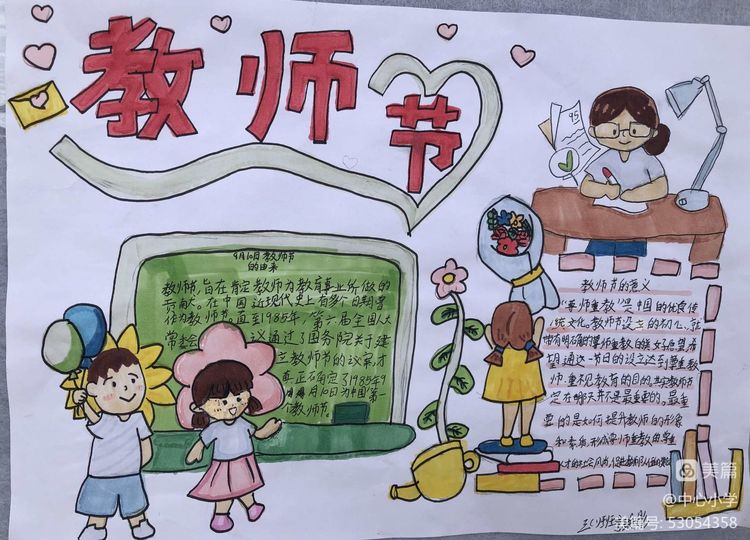 教师节
95
9月10日教师节
的由来
教师节,旨在肯定教师为教育事业所做的
贡献。在中国近现代史上有多个日期曾
作为教师节,直到1985年,第六届全国人大
常委会 议通过了国务院关于建
立教师节的议案,才
真正确定了1985年9
月10日为中国第一
个教师节。
教师节的意义
"尊师重教"是中国的优良传
统文化。教师节设立的初心,就
带有明确的尊师重教的美好愿望,希
望通过这一节日的设立达到尊重教
师,重视教育的目的。当然教师节
定在哪天并不是最重要的,最重
要的是如何提升教师的形象
和素质,形成尊师重教
才的社会风尚,
三(1)班
美篇
@中心小学
美篇号: 53054358